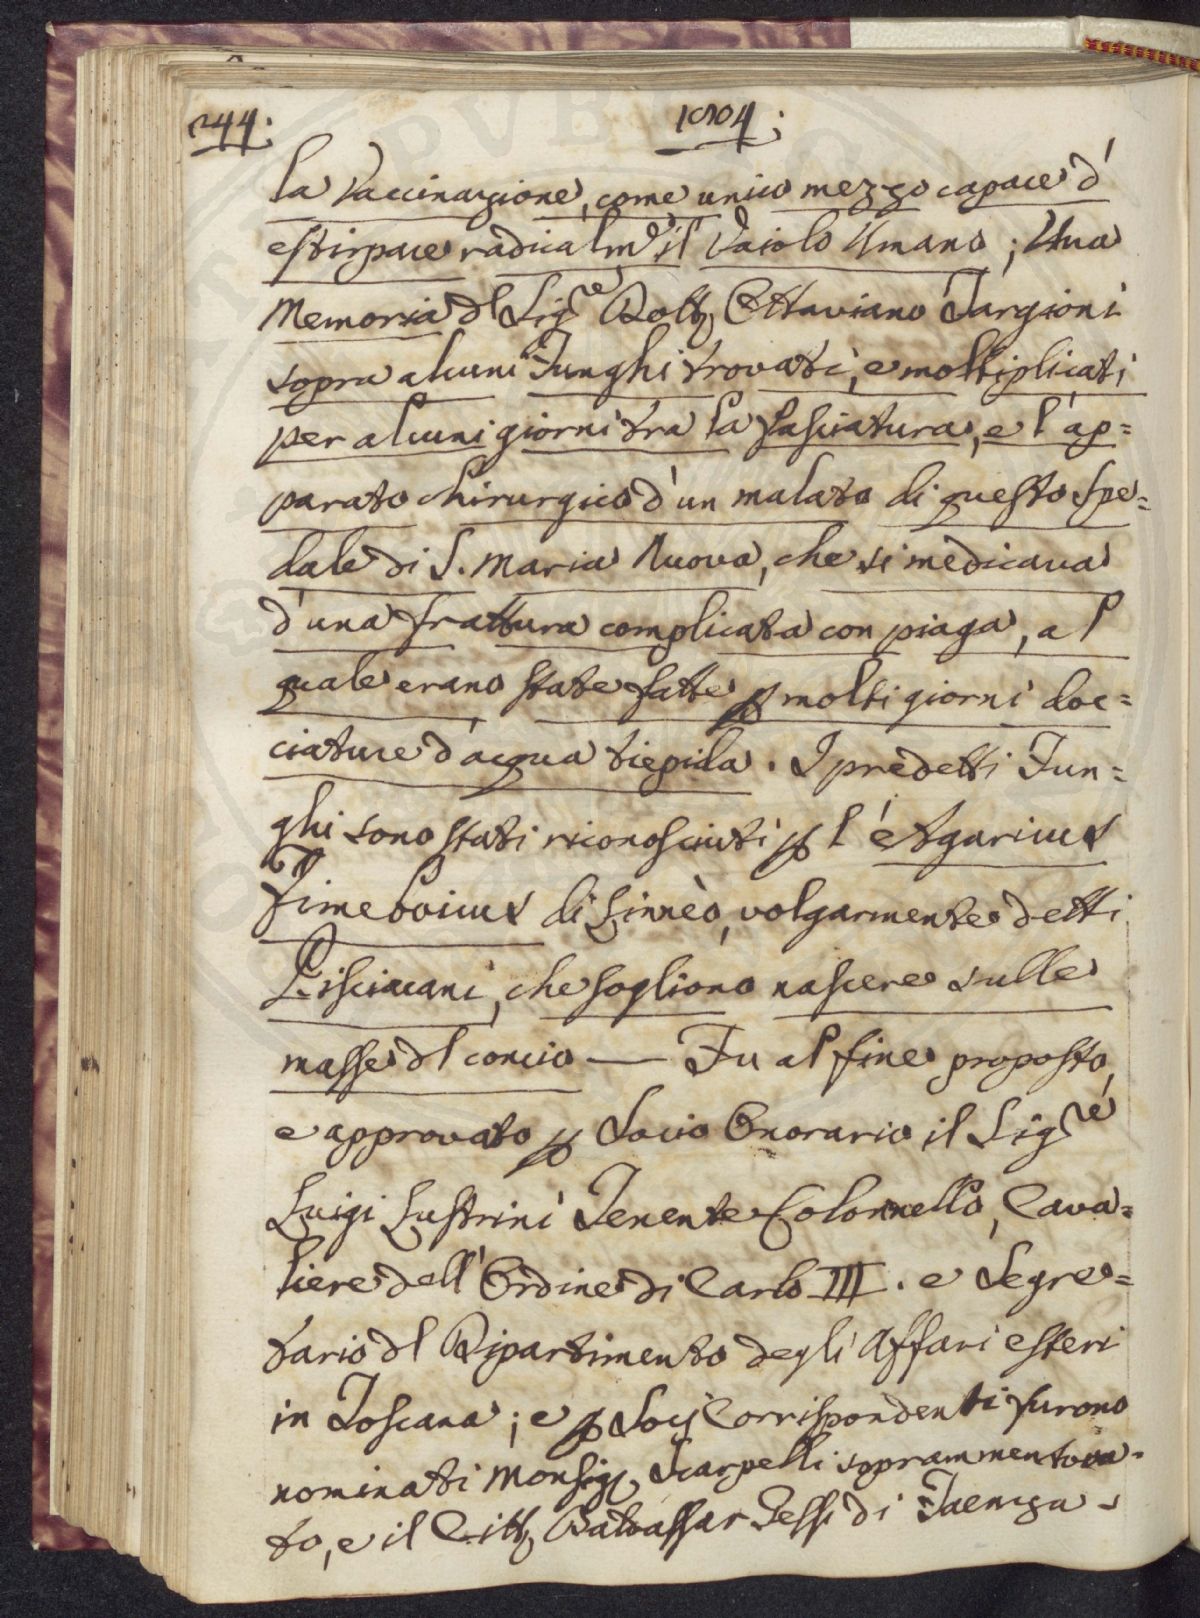 244. 1804.
la Vaccinazione, come unico mezzo capace d'
estirpare radicalm.e il Vaiolo Umano; Una
Memoria dl Sig.re Dott. Ottaviano Targioni
sopra alcuni Funghi trovati, e moltiplicati
per alcuni giorni tra la fasciatura, e l'ap=
parato chirurgico d'un malato di questo Spe=
dale di S. Maria Nuova, che si medicava
d'una frattura complicata con piaga, al
quale erano state fatte p molti giorni doc=
ciature d'acqua tiepida. I predetti Fun=
ghi sono stati riconosciuti p l'Agaricus
Fimetarius di Linnèo, volgarmente detti
Pisciacani, che sogliono nascere sulle
masse dl concio — Fu al fine proposto,
e approvato p Socio Onorario il Sig.re
Luigi Lustrini Tenente Colonnello, Cava=
liere dell'Ordine di Carlo III. e Segre=
tario dl Dipartimento degli Affari esteri
in Toscana; e p Socj Corrispondenti furono
nominati Monsig. Scarpelli soprammentova=
to, e il Citt. Baldassar Gessi di Faenza